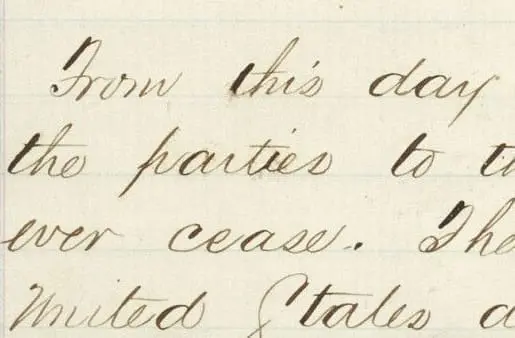 From this day
the parties to th
ever cease. The
United States a